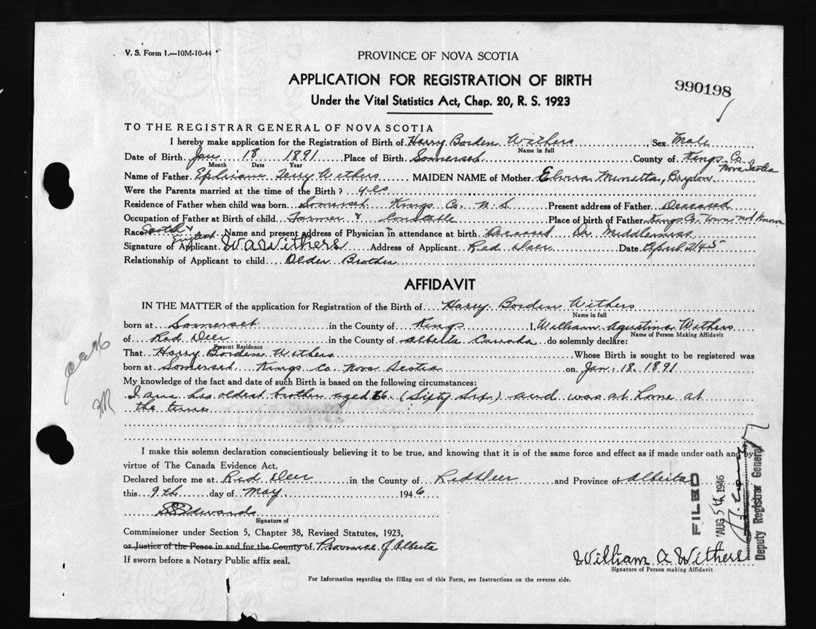 V. S. Form 1.—10M-10-44
PROVINCE OF NOVA SCOTIA
APPLICATION FOR REGISTRATION OF BIRTH
990198
Under the Vital Statistics Act, Chap. 20, R. S. 1923
TO THE REGISTRAR GENERAL OF NOVA SCOTIA
I hereby make application for the Registration of Birth of Harry Borden Withers Sex Male
Name in full
Date of Birth Jan 18 1891 Place of Birth Somerset County of Kings Co.
Month Date Year Nova Scotia
Name of Father Ephriam Withers MAIDEN NAME of Mother
Were the Parents married at the time of the Birth? yes
Residence of Father when child was born Somerset Kings Co. N.S Present address of Father Deceased
Occupation of Father at Birth of child Farmer & Constable Place of birth of Father Kings Co. Town not known
Race Scotch & Name and present address of Physician in attendance at birth Deceased Dr Middlemass
Signature of Applicant W A Withers Address of Applicant Red Deer Date April 2/45
Relationship of Applicant to child Older Brother
AFFIDAVIT
IN THE MATTER of the application for Registration of the Birth of Harry Borden Withers
Name in full
born at Somerset in the County of Kings I, William Agustina Withers
Name of Person Making Affidavit
of Red Deer in the County of Alberta Canada do solemnly declare:
Present Residence
That Harry Borden Withers Whose Birth is sought to be registered was
born at Somerset Kings Co. Nova Scotia on Jan. 18. 1891
My knowledge of the fact and date of such Birth is based on the following circumstances:
I am his oldest brother aged 66 (Sixty Six) and was at home at
the time
I make this solemn declaration conscientiously believing it to be true, and knowing that it is of the same force and effect as if made under oath and by
virtue of The Canada Evidence Act.
Declared before me at Red Deer in the County of Red Deer and Province of Alberta
this 9th day of May 1946
Edwards
Signature of
Commissioner under Section 5, Chapter 38, Revised Statutes, 1923,
or Justice of the Peace in and for the County of Province of Alberta
If sworn before a Notary Public affix seal.
William A Withers
Signature of Person making Affidavit
FILED
AUG 5th 1946
Deputy Registrar General
For Information regarding the filling out of this Form, see Instructions on the reverse side.